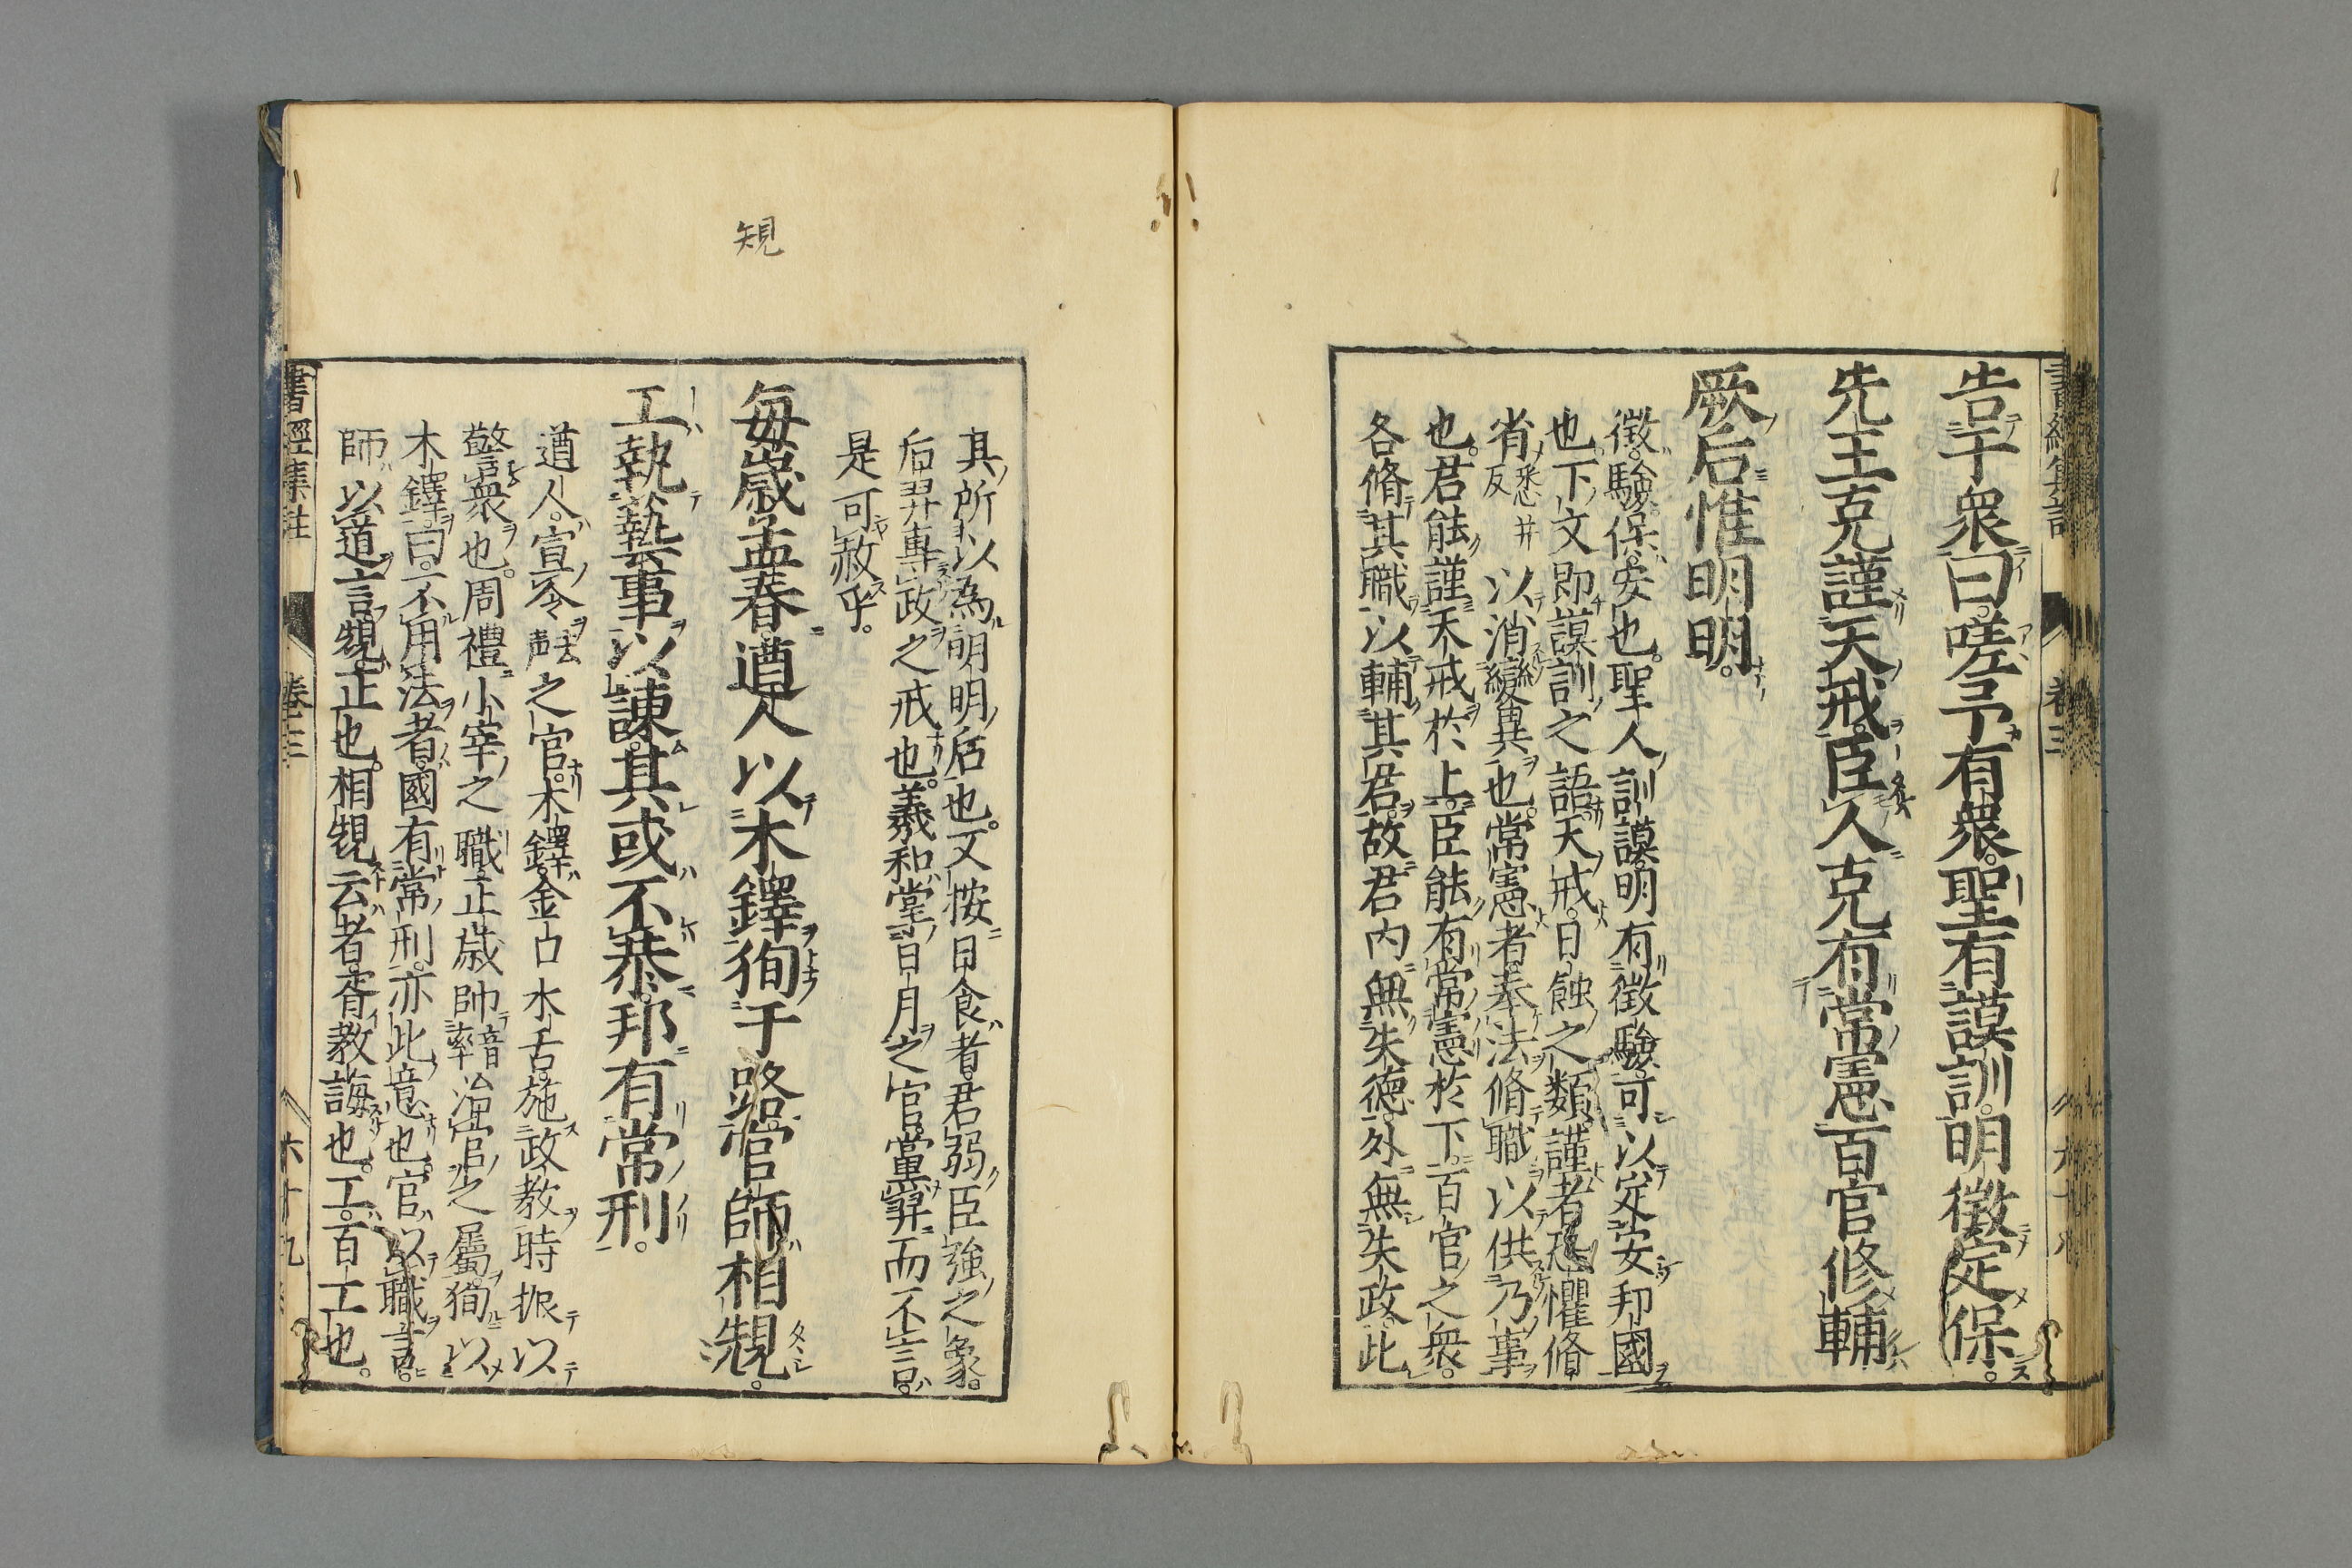 告于衆曰嗟予有衆聖有謨訓明徵定保。
先王克謹天戒臣人克有常憲百官修輔
厥后惟明明。
徵驗保安也聖人訓謨明有徵驗可以定安邦國
也下文即謨訓之語天戒日蝕之類謹者恐懼脩
省悉井反以消變異也常憲者奉法脩職以供乃事
也君能謹天戒於上臣能有常憲於下百官之衆。
各脩其職以輔其君故君内無失德外無失政此
其所以為明明后也又按日食者君弱臣強之象。
后羿專政之戒也羲和掌日月之官黨羿而不言。
是可赦乎。
每歲孟春遒人以木鐸徇于路官師相規。
工執藝事以諫其或不恭邦有常刑。
遒人宣令之官木鐸金口木舌施政教時振以
警衆也周禮小宰之職正歲帥音率治官之屬徇以
木鐸曰不用法者國有常刑亦此意也官以職言。
師以道言規正也相規云者胥教誨也工百工也。
規
書經集註 卷三 六十九